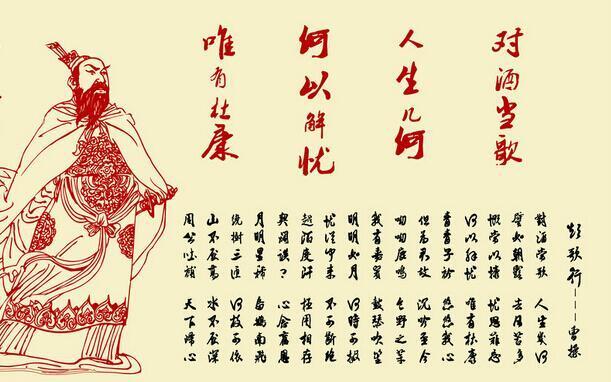 对酒当歌
人生几何
何以解忧
唯有杜康
短歌行——曹操
對酒當歌 人生幾何
譬如朝露 去日苦多
慨當以慷 憂思難忘
何以解憂 唯有杜康
青青子衿 悠悠我心
但為君故 沉吟至今
呦呦鹿鳴 食野之苹
我有嘉賓 鼓瑟吹笙
明明如月 何時可掇
憂從中來 不可斷絕
越陌度阡 枉用相存
闊談？ 心念舊恩
月明星稀 烏鵲南飛
繞樹三匝 何枝可依
山不厭高 水不厭深
周公吐哺 天下歸心